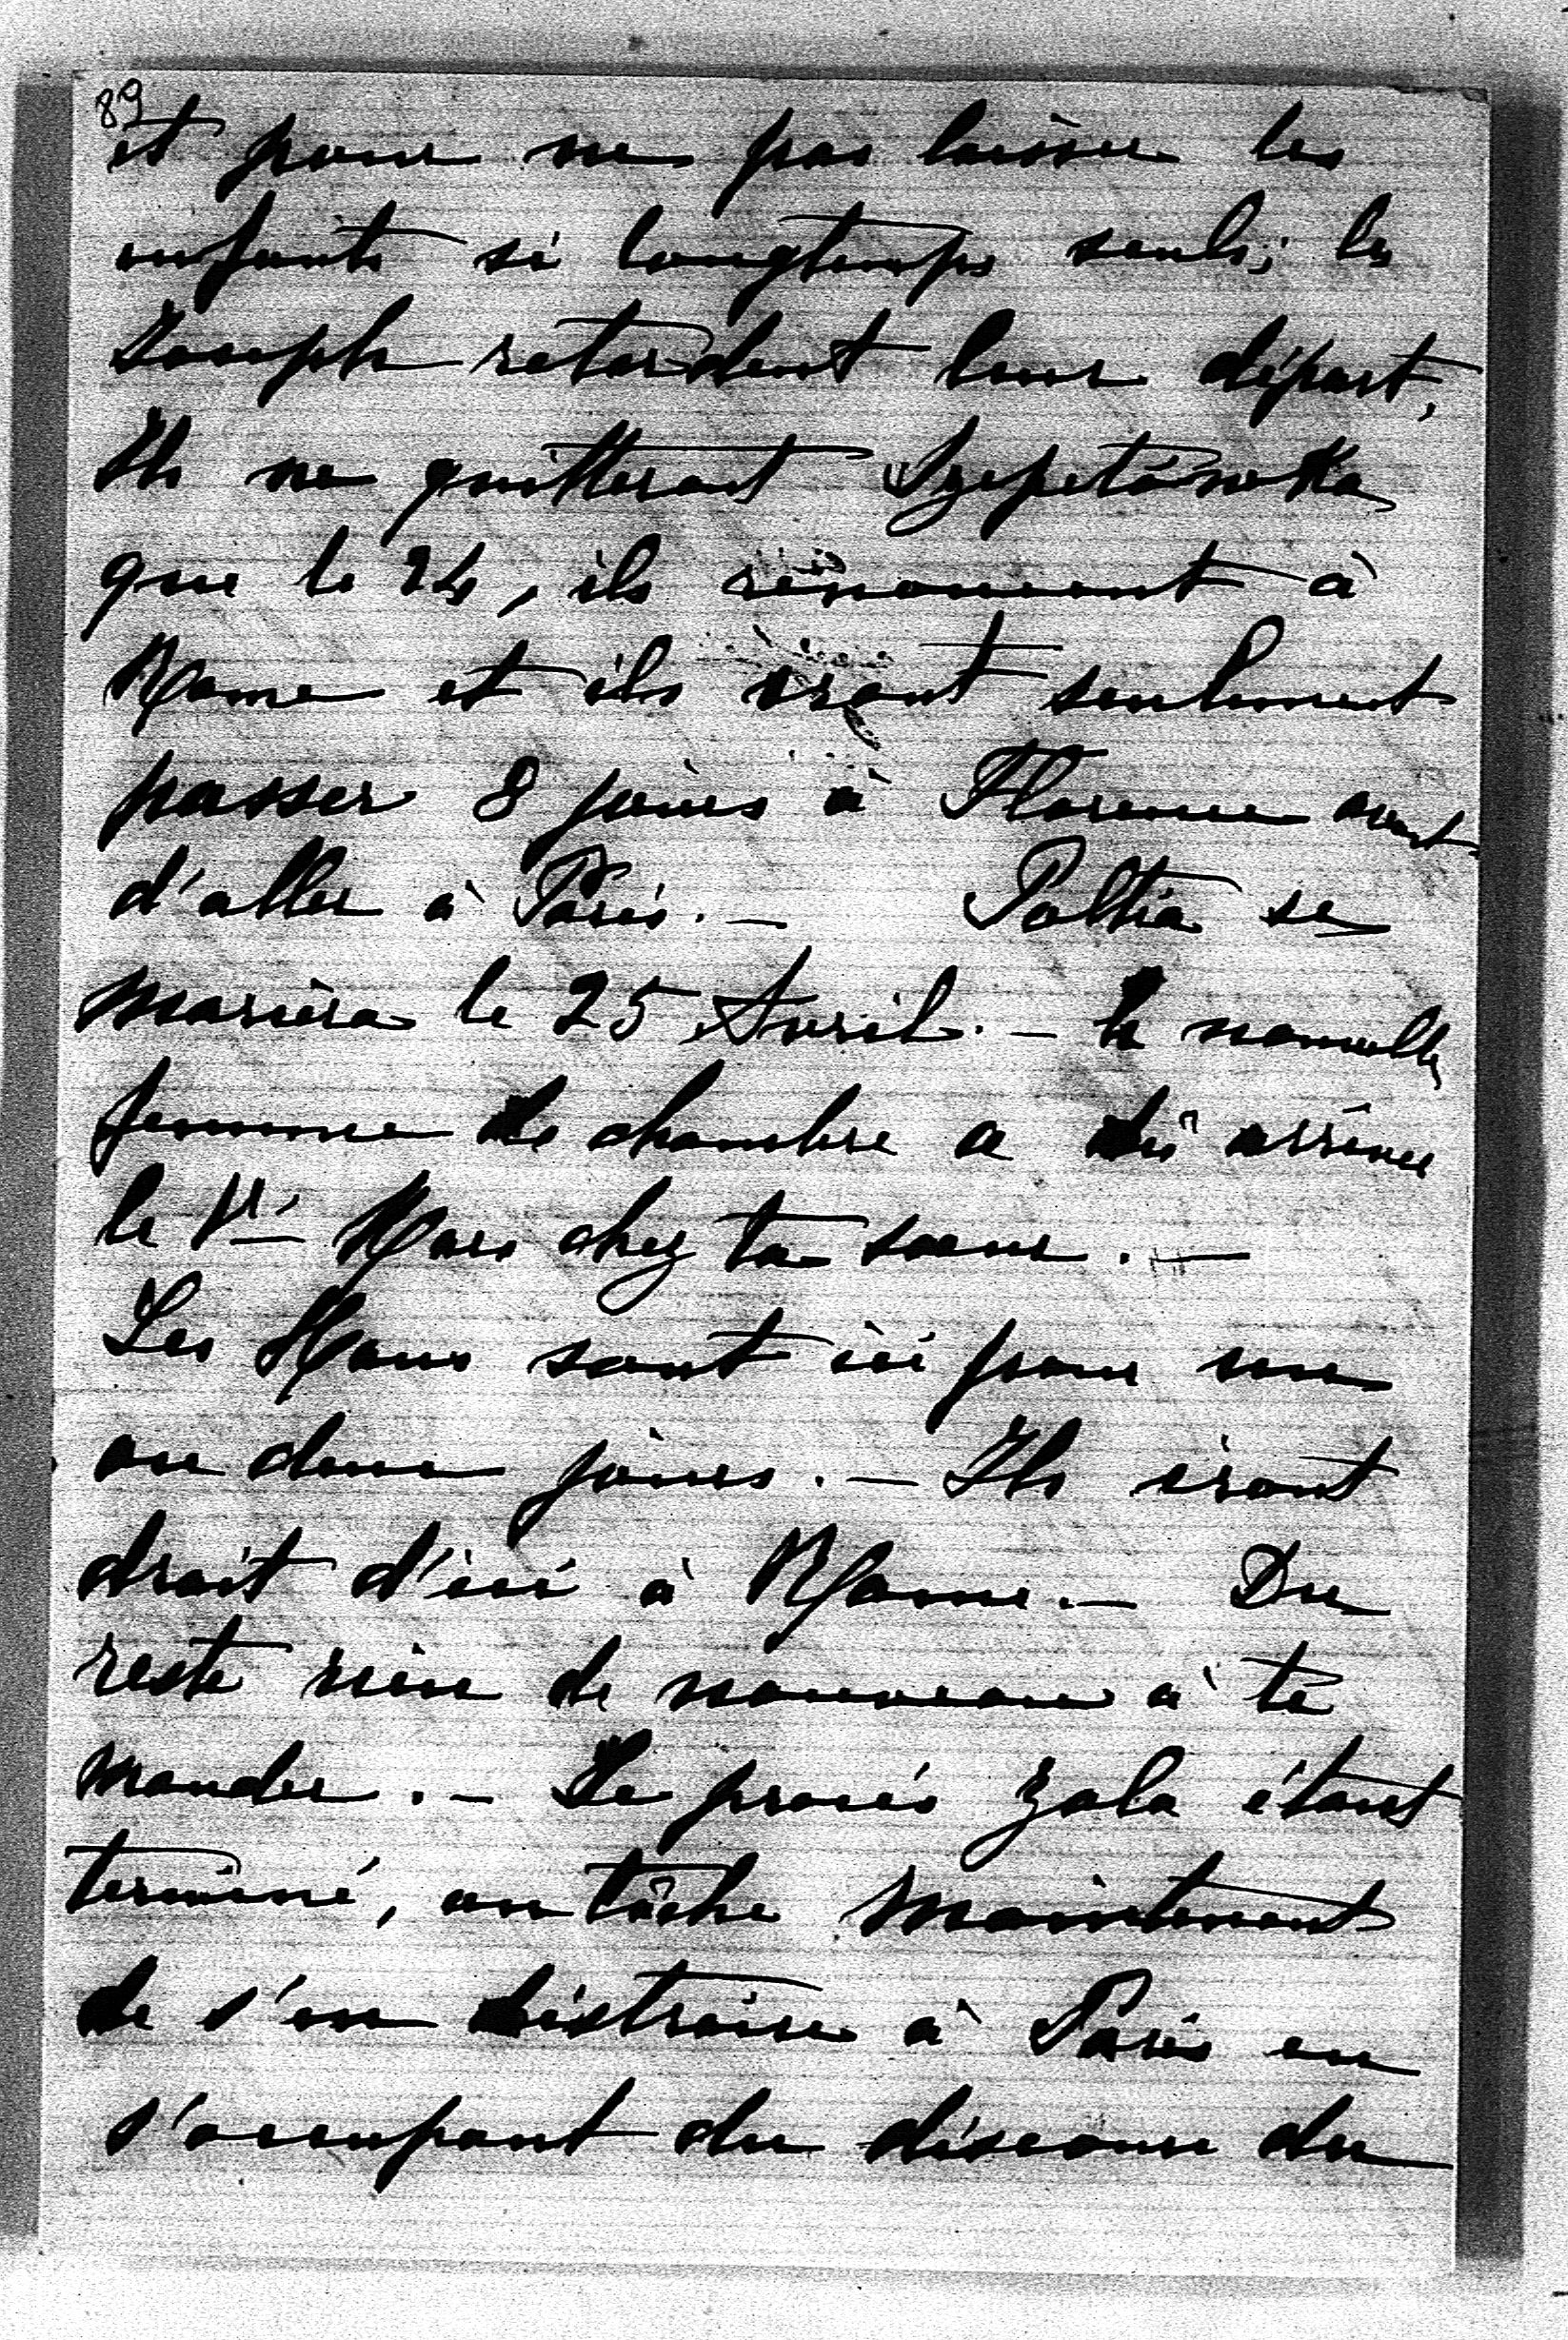 89
et pour ne pas laisser les
enfants si longtemps seuls; les
Joseph retardent leur départ,
Ils ne quitteront Szepetówka
que le 24, ils renoncent à
Rome et ils iront seulement
passer 8 jours à Florence avant
d'aller à Paris. —  se
mariera le 25 Avril. — la nouvelle
femme de chambre a dû arriver
le 1r Mars chez ta soeur. —
Les sont ici pour un
ou deux jours. — Ils iront
droit d'ici à Rome. — Du
reste rien de nouveau à te
mander. — Le procès Zola étant
terminé, on tâche maintenant
de s'en distraire à Paris en
s'occupant du discours du